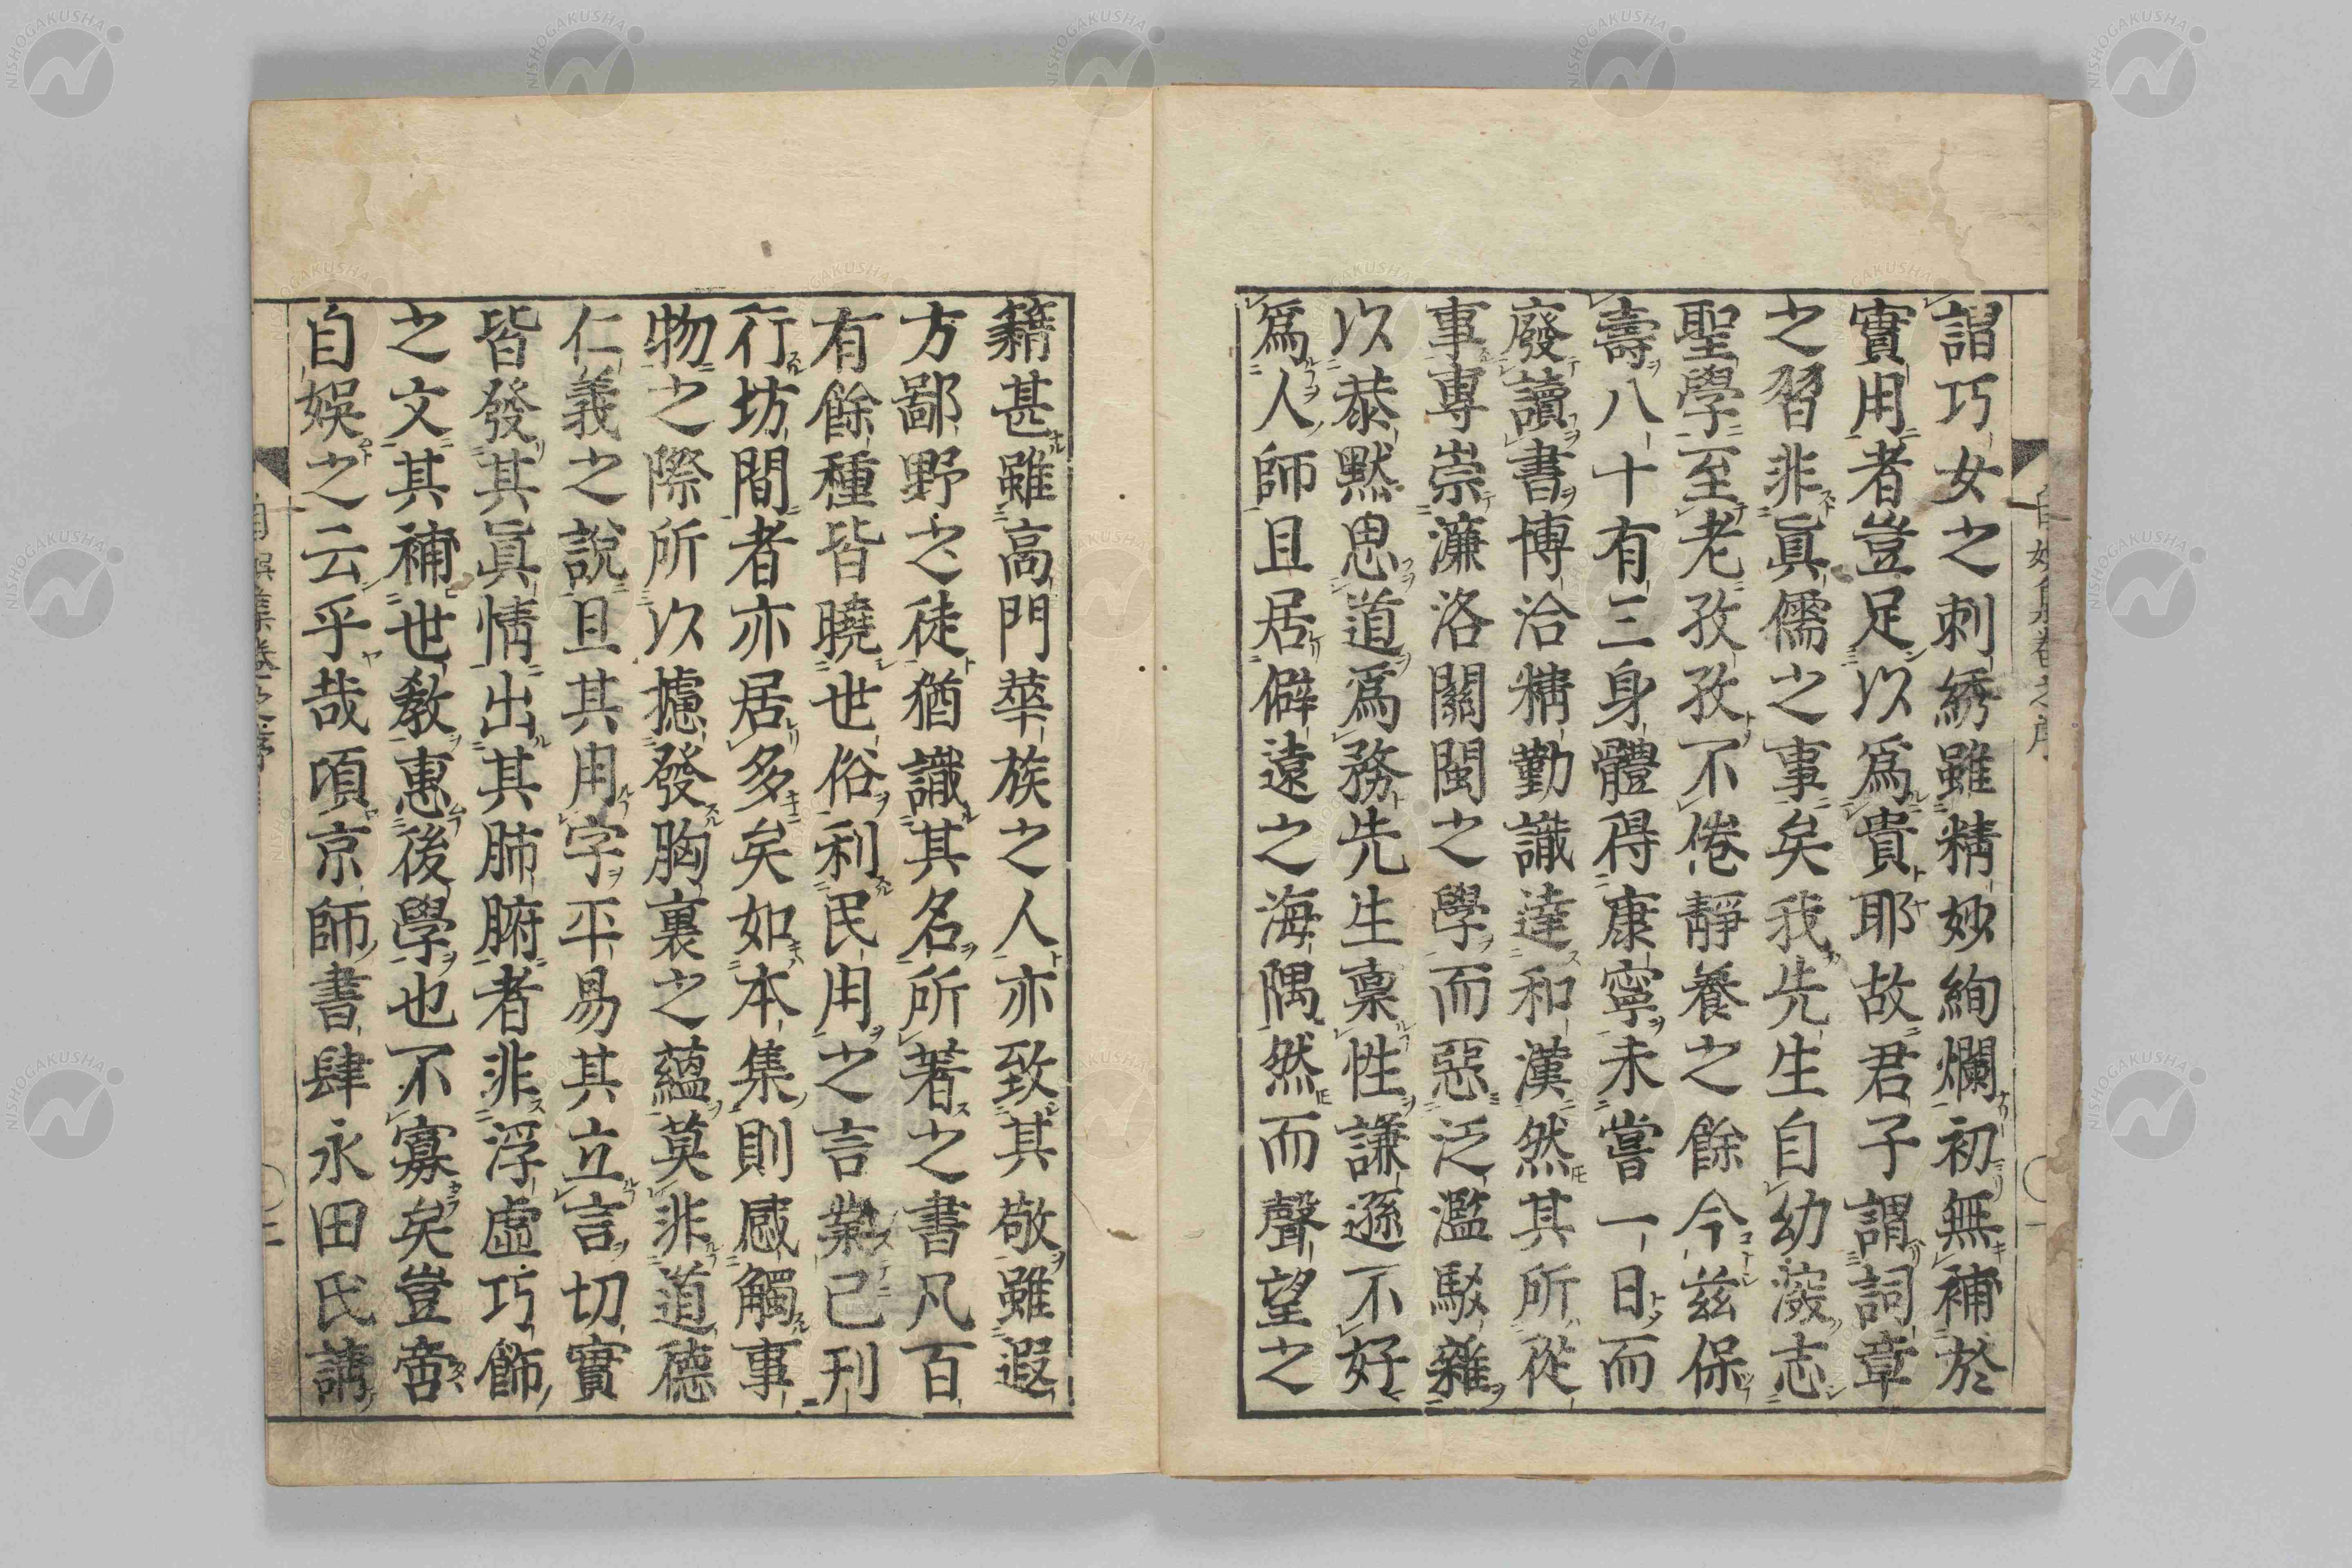 謂巧女之刺綉雖精妙絢爛初無補於
實用者豈足以為貴耶故君子謂詞章
之習非眞儒之事矣我先生自幼濲志
聖學至老孜孜不倦靜養之餘今茲保
壽八十有三身體得康寧未嘗一日而
廢讀書博洽精勤識達和漢然其所從
事專崇濂洛關閩之學而惡泛濫駁雜
以恭默思道爲務先生稟性謙遜不好
爲人師且居僻遠之海隅然而聲望之
籍甚雖高門華族之人亦致其敬雖遐
方鄙野之徒猶識其名所著之書凡百
有餘種皆曉世俗利民用之言業已刊
行坊間者亦居多矣如本集則感觸事
物之際所以攄發胸裏之蘊莫非道德
仁義之說且其用字平易其立言切實
皆發其眞情出其肺腑者非浮虛巧飾
之文其補世教惠後學也不寡矣豈啻
自娛之云乎哉頃京師書肆永田氏請
自娛集卷之序